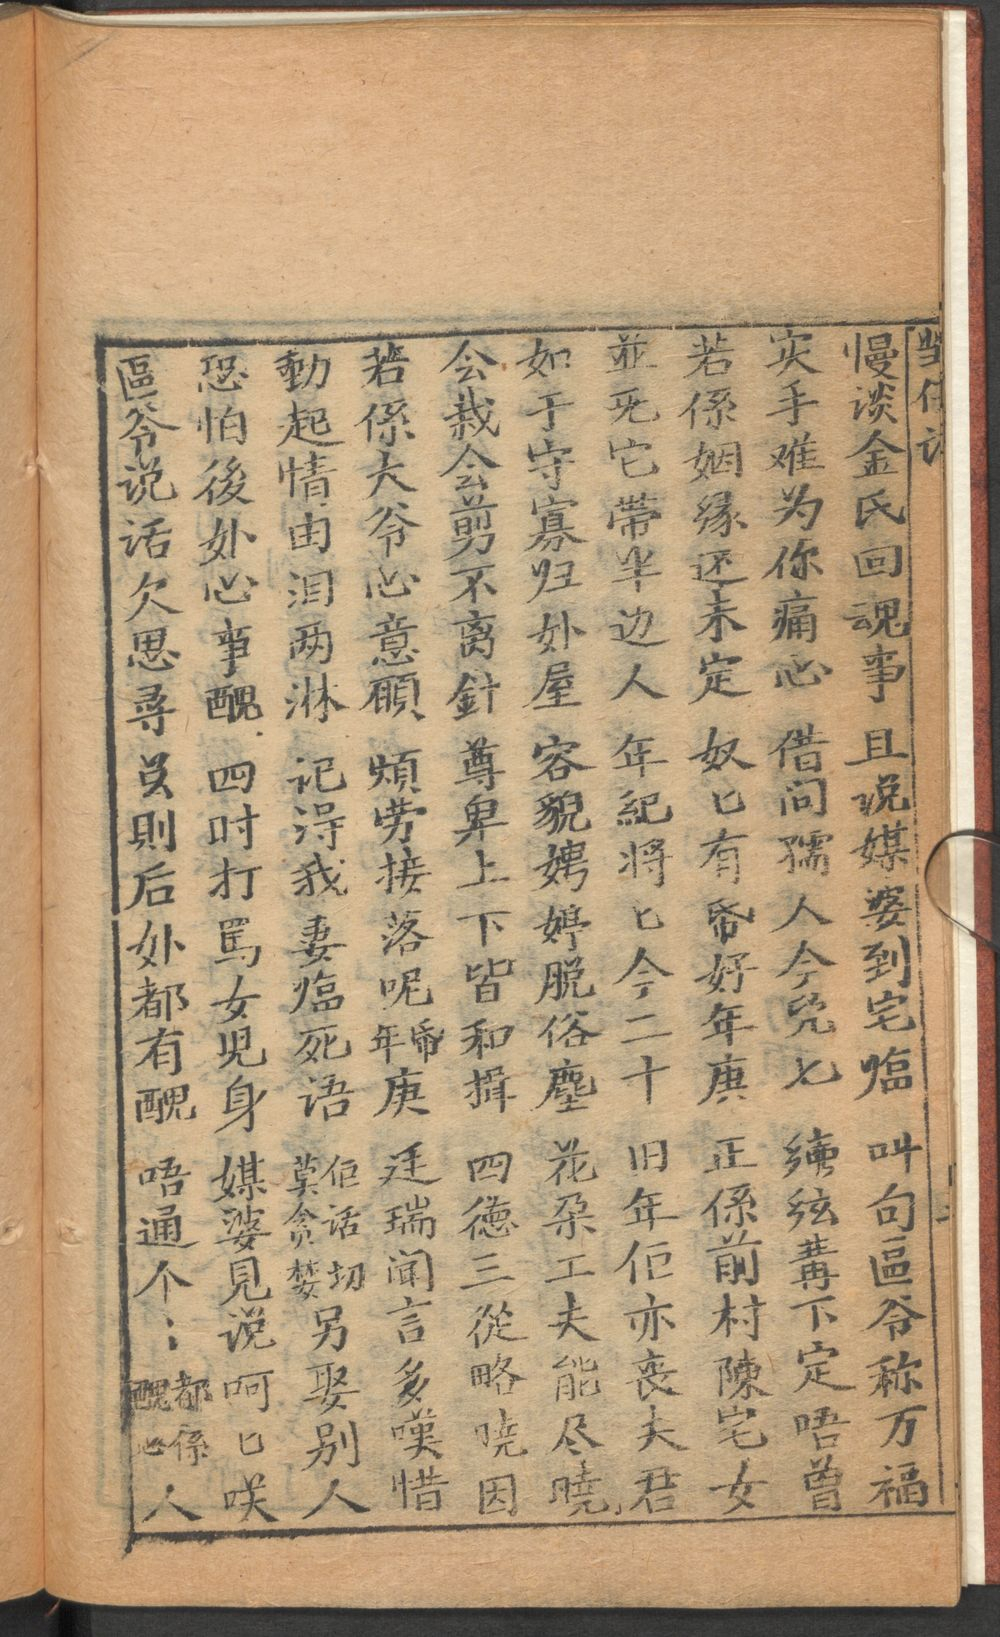 慢谈金氏回魂事 且说媒婆到宅临 叫句區爷称万福
实手难为你痛心 借问孺人今凭七 续弦冓下定唔曽
若係姻缘还未定 奴匕有㡬好年庚 正係前村陳宅女
並死它帶半边人 年紀将匕今二十 旧年佢亦丧夫君
如于守寡归外屋 容貌娉婷脱俗塵 花朶工夫能尽曉
会裁会剪不离針 尊卑上下皆和揖 四徳三從略暁因
若係大爷心意願 煩劳接落呢㡬年庚 廷瑞闻言多嘆惜
動起情由泪两淋 记得我妻临死语 佢话切莫贪婪另娶别人
恐怕後处心事醜 四吋打罵女児身 媒婆見说呵匕咲
區爷说话欠思尋 㒵則后处都有醜 唔通个〻都係醜心人